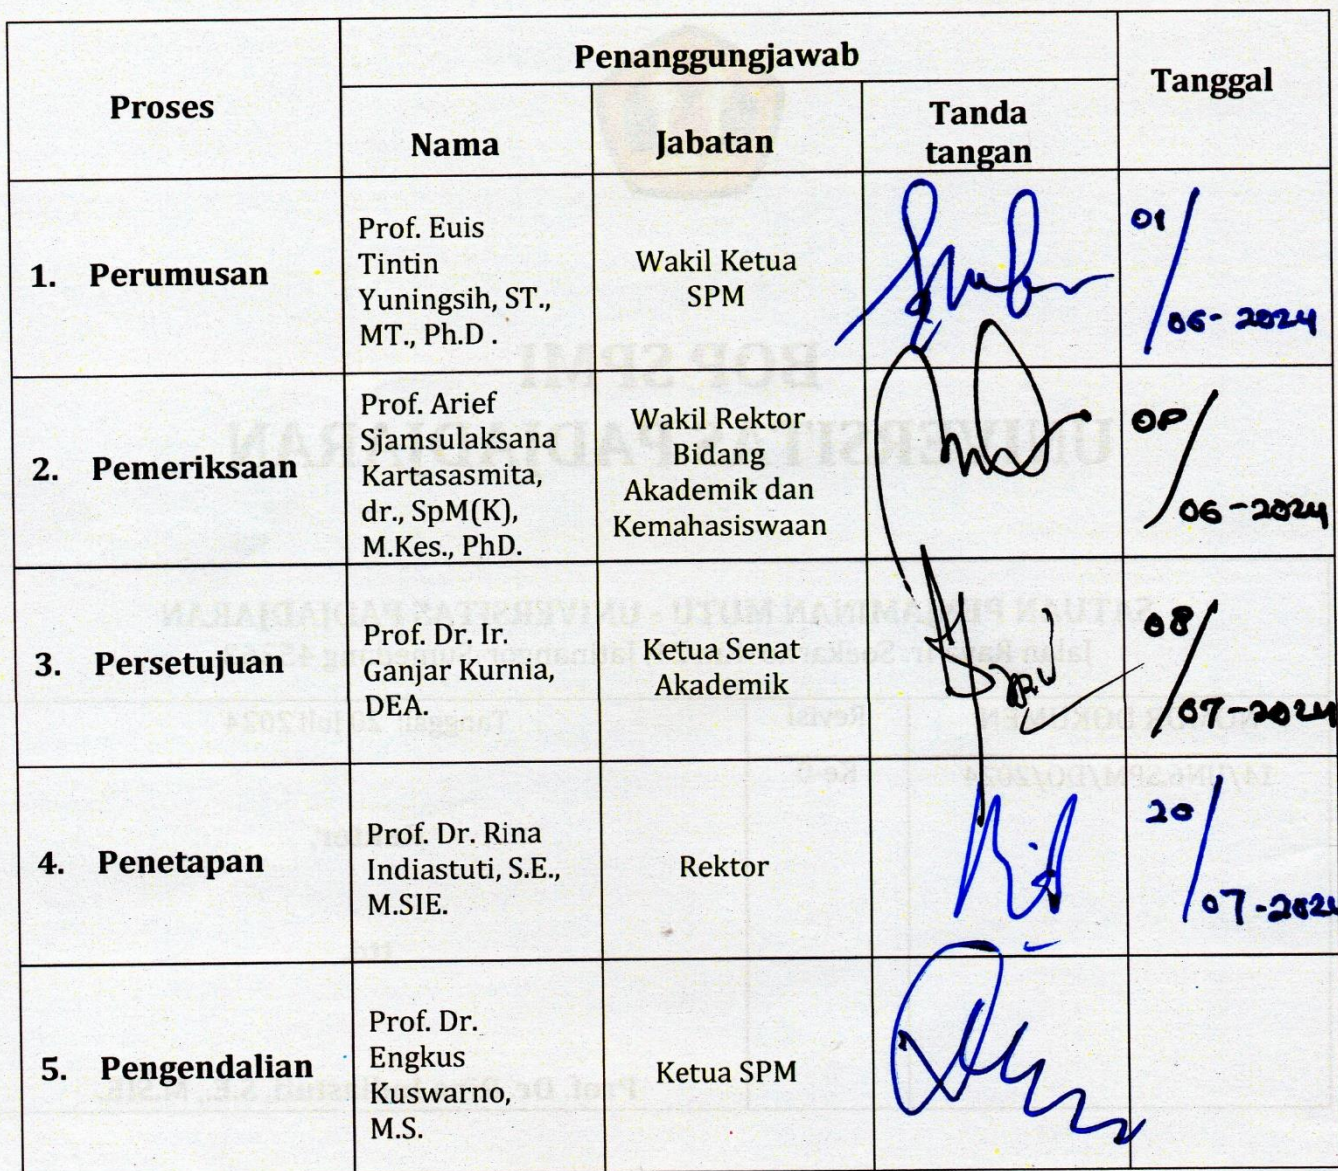 Proses
Penanggungjawab
Tanggal
Nama
Jabatan
Tanda
tangan
1. Perumusan
Prof. Euis
Tintin
Yuningsih, ST.,
MT., Ph.D .
Wakil Ketua
SPM
01/
06-2024
2. Pemeriksaan
Prof. Arief
Sjamsulaksana
Kartasasmita,
dr., SpM(K),
M.Kes., PhD.
Wakil Rektor
Bidang
Akademik dan
Kemahasiswaan
06-2024
3. Persetujuan
Prof. Dr. Ir.
Ganjar Kurnia,
DEA.
Ketua Senat
Akademik
08/
07-2024
4. Penetapan
Prof. Dr. Rina
Indiastuti, S.E.,
M.SIE.
Rektor
20/
07-2024
5. Pengendalian
Prof. Dr.
Engkus
Kuswarno,
M.S.
Ketua SPM
BOP SPMI
UNIVERSITAS PADJADJARAN
SATUAN PENJAMINAN MUTU - UNIVERSITAS PADJADJARAN